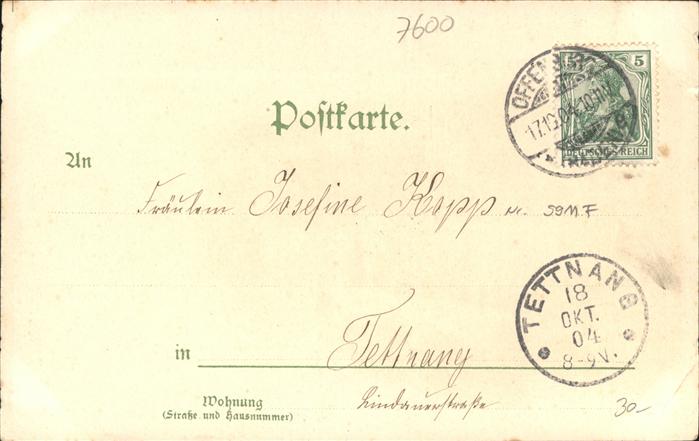 7600
5 5
DEUTSCHES REICH
OFFENBURG
17.10.04.
Postkarte.
An
Fräulein Josefine Kopp
in Tettnang
Lindauerstraße
Wohnung
(Straße und Hausnummer)
TETTNANG
18
OKT.
04
8-9V.
30-